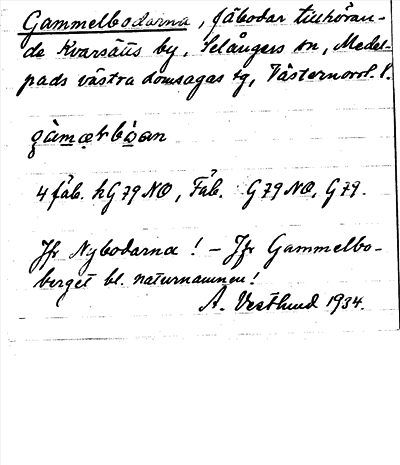 Gammelbodarna, fäbodar tillhöran-
de Kvarsätts by, Selångers sn, Medel-
pads västra domsagas tg, Västernorrl. l.
gàmærbòan
4 fäb. hG 79 NO, Fäb. G 79 NO, G 79.
Jfr Nybodarna! – Jfr Gammelbo-
berget bl. naturnamnen!
A. Vestlund 1934.